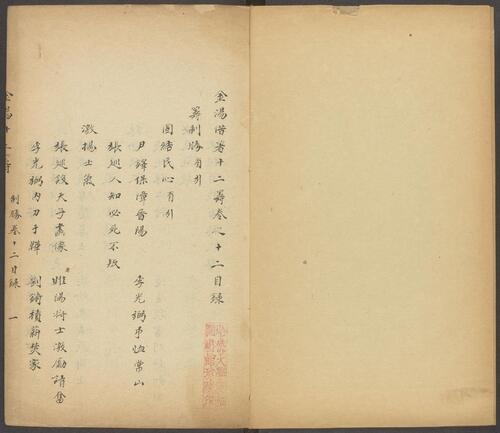 金湯借箸十二籌卷之十二目錄
籌制勝有引
固結民心有引
尹鐸保障晉陽 李光弼弔恤常山
張巡人知必死不叛
激揚士氣
張巡設天子畫像 睢陽將士激勵請奮
李光弼內刀于鞾 劉錡積薪焚家
制勝卷十二目錄 一